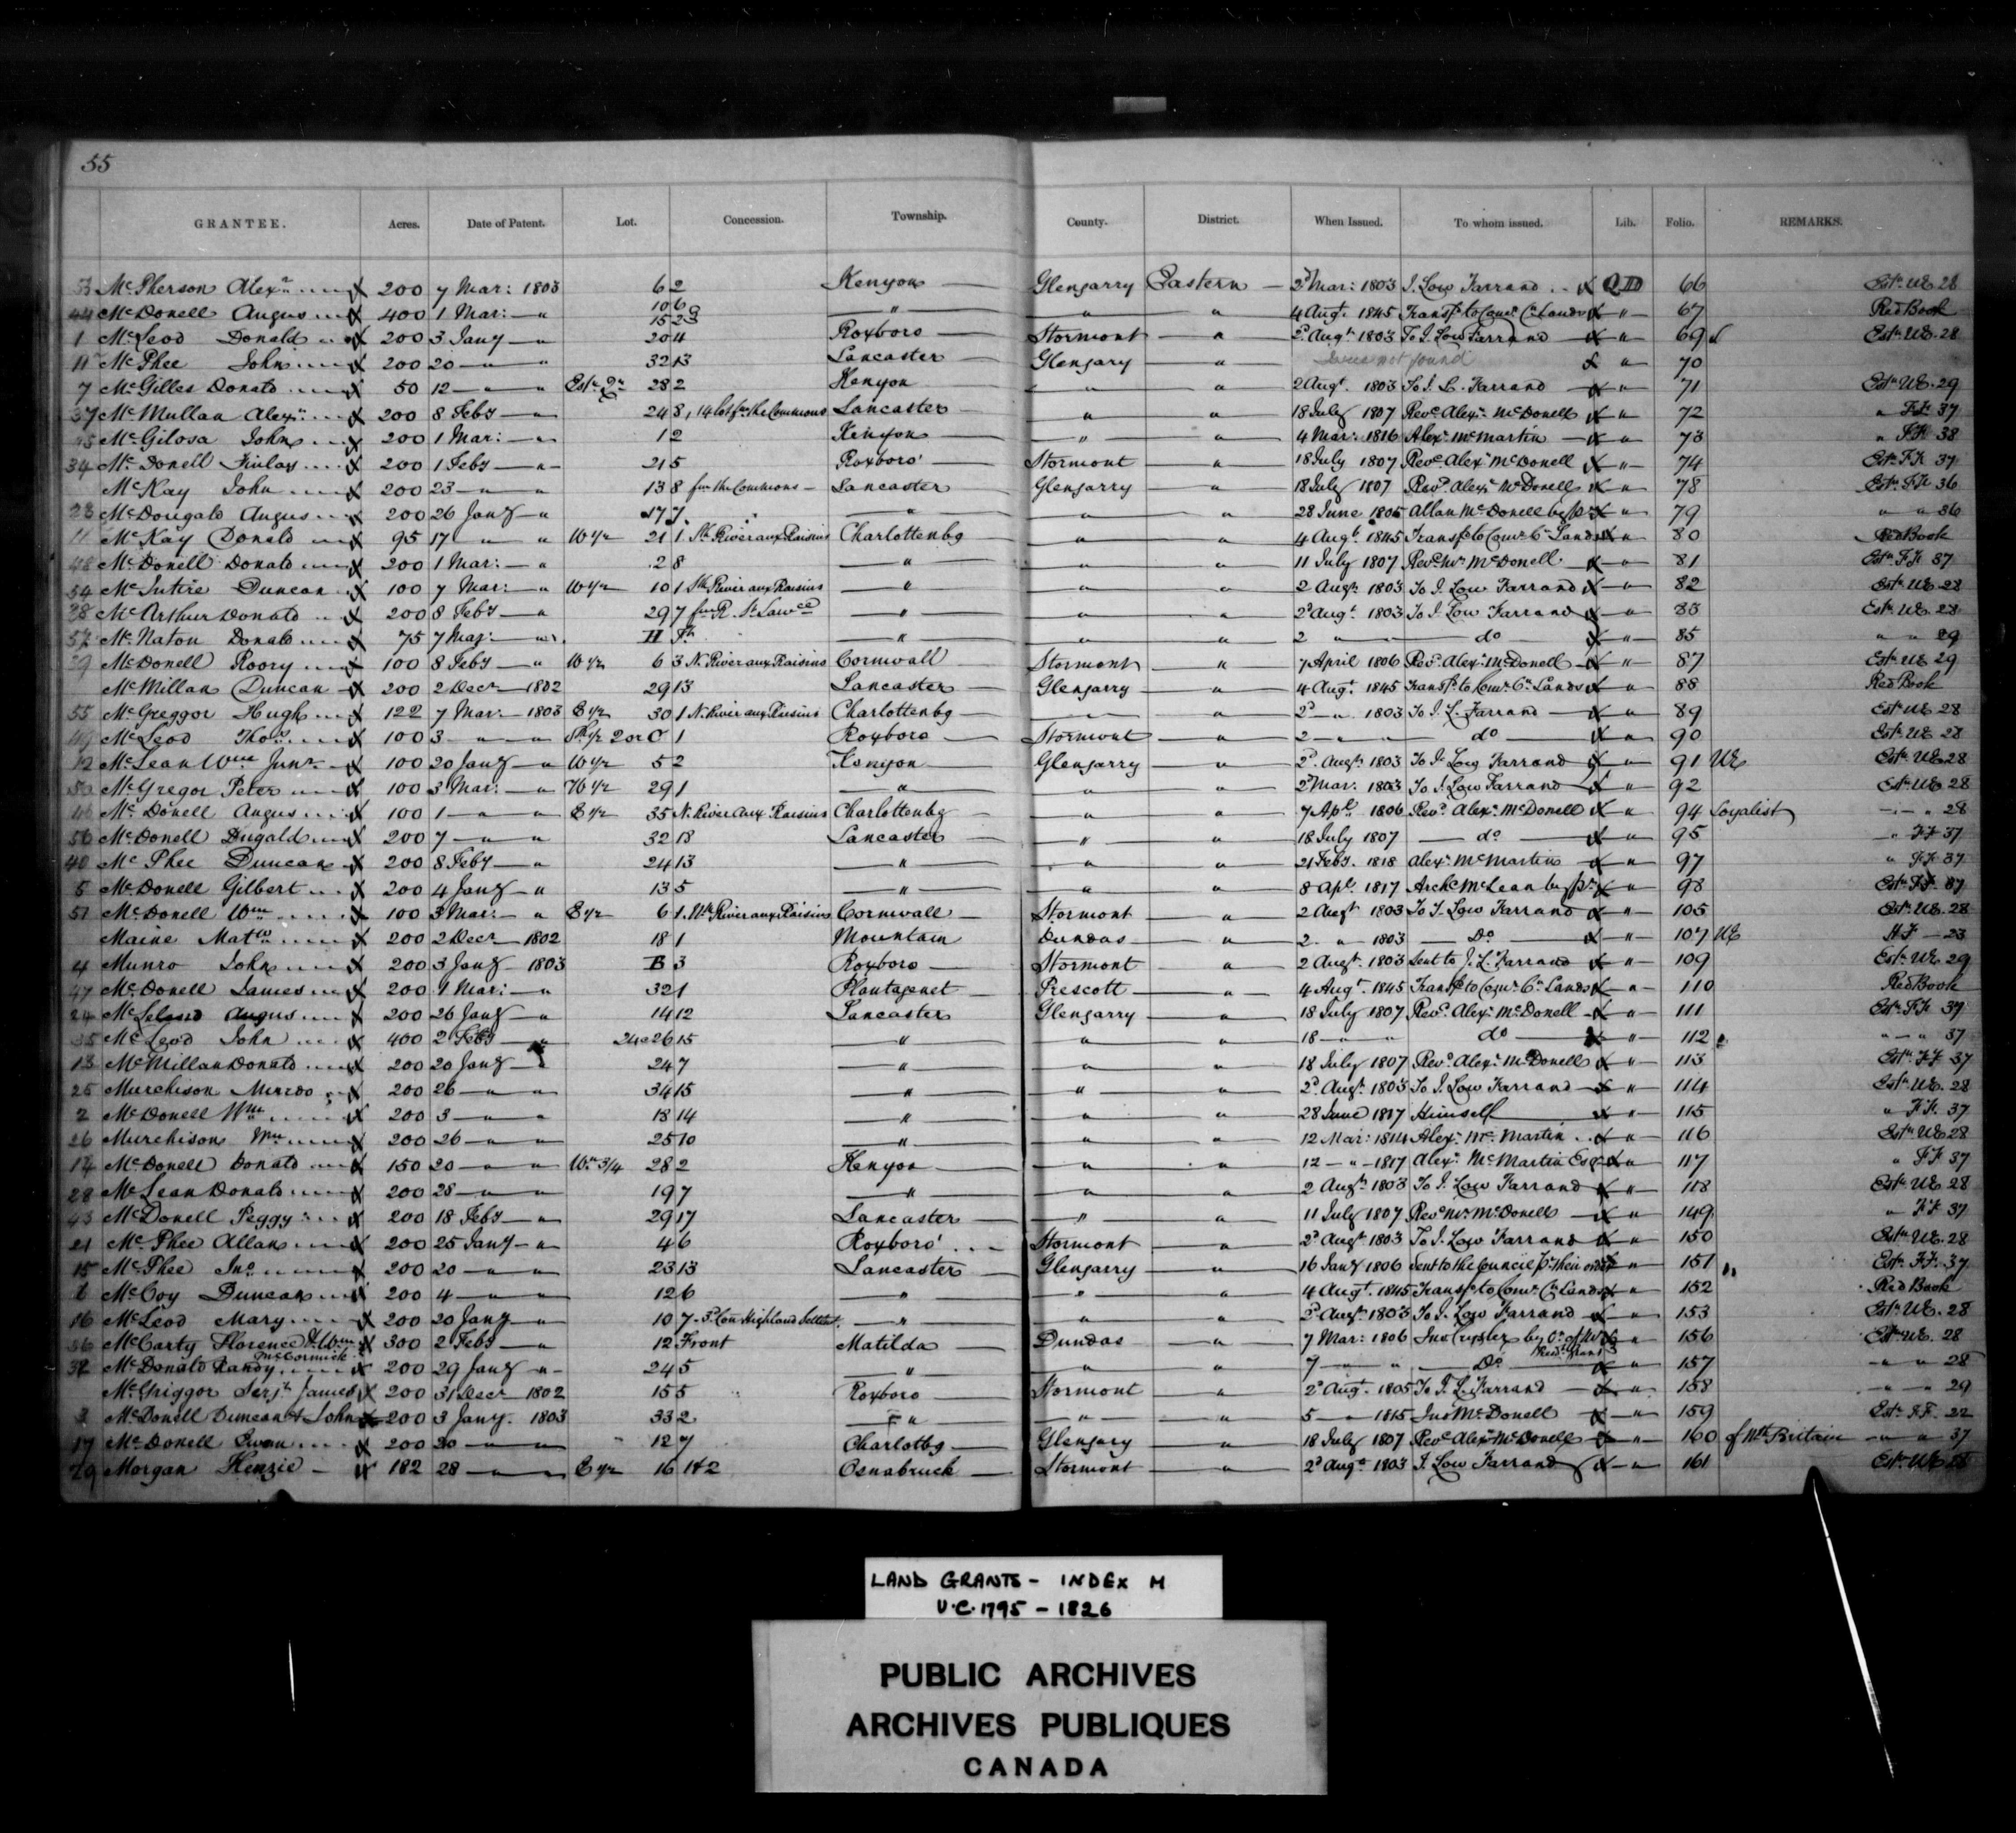 55
GRANTEE. Acres. Date of Patent. Lot. Concession. Township. County. District. When Issued. To whom issued. Lib. Folio. REMARKS.
53 McPherson Alexr 200 7 Mar: 1803 6 2 Kenyon Glengarry Eastern 2d Mar: 1803 J. Low Farrand QD 66 Estn UE 28
44 McDonell Angus 400 1 Mar: " 10 6 15 2 9 " " " 4 Augt 1845 Transfd to Comr Cn Lands " 67 Red Book
1 McLeod Donald 200 3 Jany " 20 4 Roxboro Stormont " 2d Augt 1803 To J. Low Farrand " 69 Estn UE. 28
11 McPhee John 200 20 " " 32 13 Lancaster Glengary " does not found " 70
7 McGilles Donald 50 12 " " 28 2 Kenyon " " 2 Augt. 1803 To J. L. Farrand " 71 Estn UE. 29
37 McMullan Alexr 200 8 Feby " 24 8, 14 lot fm the Commons Lancaster " " 18 July 1807 Revd Alexr McDonell " 72 " FF 37
45 McGilosa John 200 1 Mar: " 1 2 Kenyon " " 4 Mar: 1816 Alexr McMartin " 73 " FF 38
34 McDonell Finlay 200 1 Feby " 21 5 Roxboro' Stormont " 18 July 1807 Revd Alexr McDonell " 74 Estn FF 37
McKay John 200 23 " " 13 8 fm the Commons Lancaster Glengarry " 18 July 1807 Revd Alexr McDonell " 78 Estn FF 36
23 McDougald Angus 200 26 Jany " 17 7 " " " 28 June 1805 Allan McDonell by Pr " 79 " " 36
11 McKay Donald 95 17 " " W 1/2 21 1 Sth River aux Raisins Charlottenbg " " 4 Augt 1845 Transfd to Comr Cn Lands " 80 Red Book
48 McDonell Donald 200 1 Mar: " 2 8 " " " 11 July 1807 Revd Mr McDonell " 81 Estn FF 37
54 McIntire Duncan 100 7 Mar: " W 1/2 10 1 Sth River aux Raisins " " " 2 Augt 1803 To J. Low Farrand " 82 Estn UE 28
38 McArthur Donald 200 8 Feby " 29 7 fm R. St Lawce " " " 2d Augt 1803 To J. Low Farrand " 83 Estn UE. 28
52 McNaton Donald 75 7 Mar: " H " " " 2 " " do " 85 " " 29
39 McDonell Roory 100 8 Feby " W 1/2 6 3 N. River aux Raisins Cornwall Stormont " 7 April 1806 Revd Alexr McDonell " 87 Estn UE 29
McMillan Duncan 200 2 Decr 1802 29 13 Lancaster Glengarry " 4 Augt 1845 Transfd to Comr Cn Lands " 88 Red Book
55 McGreggor Hugh 122 7 Mar: 1803 E 1/2 30 1 N. River aux Raisins Charlottenbg " " 2d " 1803 To J. L. Farrand " 89 Estn UE 28
49 McLeod Thos 100 3 " " Sth 1/2 2 or C 1 Roxboro Stormont " 2 " " do " 90 Estn UE 28
12 McLean Wm Junr 100 20 Jany " W 1/2 5 2 Kenyon Glengarry " 2d Augt 1803 To J. Low Farrand " 91 UE Estn UE. 28
50 McGregor Peter 100 3 Mar: " W 1/2 29 1 " " " 2d Mar: 1803 To J. Low Farrand " 92 Estn UE 28
46 McDonell Angus 100 1 " " E 1/2 35 N. River Aux Raisins Charlottenbg " " 7 Apl 1806 Revd Alexr McDonell " 94 Loyalist " " 28
56 McDonell Dugald 200 7 " " 32 13 Lancaster " " 18 July 1807 do " 95 " FF 37
40 McPhee Duncan 200 8 Feby " 24 13 " " " 21 Feby. 1818 Alexr McMartin " 97 " FF 37
5 McDonell Gilbert 200 4 Jany " 13 5 " " " 8 Apl. 1817 Archd McLean by Pr " 98 Estn FF 37
51 McDonell Wm 100 3 Mar: " E 1/2 6 1. Nth River aux Raisins Cornwall Stormont " 2 Augt 1803 To J. Low Farrand " 105 Estn UE. 28
Maine Matw 200 2 Decr 1802 18 1 Mountain Dundas " 2 " 1803 Do " 107 UE H.F 23
4 Munro John 200 3 Jany 1803 B 3 Roxboro Stormont " 2 Augt. 1803 Sent to J. L. Farrand " 109 Estn UE. 29
47 McDonell James 200 1 Mar: " 32 1 Plantagenet Prescott " 4 Augt 1845 Transfd to Comr Cn Lands " 110 Red Book
24 McLeland Angus 200 26 Jany " 14 12 Lancaster Glengarry " 18 July 1807 Revd Alexr McDonell " 111 Estn FF 37
35 McLeod John 400 2 Feby " 24 & 26 15 " " " 18 " " do " 112 " " 37
13 McMillan Donald 200 20 Jany " 24 7 " " " 18 July 1807 Revd Alexr McDonell " 113 Estn FF 37
25 Murchison Murdo 200 26 " " 34 15 " " " 2d Augt 1803 To J. Low Farrand " 114 Estn UE. 28
2 McDonell Wm 200 3 " " 18 14 " " " 28 June 1817 Himself " 115 " FF. 37
26 Murchison Wm 200 26 " " 25 10 " " " 12 Mar: 1814 Alexr McMartin " 116 Estn UE 28
14 McDonell Donald 150 20 " " Wn 3/4 28 2 Kenyon " " 12 " 1817 Alexr McMartin Esq " 117 " FF 37
28 McLean Donald 200 28 " " 19 7 " " " 2 Augt 1803 To J. Low Farrand " 118 Estn UE. 28
43 McDonell Peggy 200 18 Feby " 29 17 Lancaster " " 11 July 1807 Revd Mr McDonell " 149 " FF 37
21 McPhee Allan 200 25 Jany " 4 6 Roxboro' Stormont " 2d Augt 1803 To J. Low Farrand " 150 Estn UE. 28
15 McPhee Jno 200 20 " " 23 13 Lancaster Glengarry " 16 Jany 1806 Sent to the Council pr their order " 151 Estn FF. 37
6 McCoy Duncan 200 4 " " 12 6 " " " 4 Augt. 1845 Transfd to Comr Cn Lands " 152 Red Book
16 McLeod Mary 200 20 Jany " 10 7 - 3d Con Highland Settlemt " " " 2d Augt 1803 To J. Low Farrand " 153 Estn UE. 28
36 McCarty Florence & Wm McCormick 300 2 Feby " 12 Front Matilda Dundas " 7 Mar: 1806 Jno Crysler by " 156 Estn UE. 28
32 McDonald Randy 200 29 Jany " 24 5 " " " 7 " " Do " 157 " " 28
McGriggor Serjt James 200 31 Decr 1802 15 5 Roxboro Stormont " 2d Augt. 1805 To J. L. Farrand " 158 " " 29
3 McDonell Duncan & John 200 3 Jany. 1803 33 2 " " " 5 " 1815 Jno McDonell " 159 Estn FF. 22
17 McDonell Ewen 200 20 " " 12 7 Charlotbg Glengary " 18 July 1807 Revd Alexr McDonell " 160 of Nth Britain " " 37
29 Morgan Kenzie 182 28 " " E 1/2 16 1 & 2 Osnabruck Stormont " 2d Augt 1803 J. Low Farrand " 161 Estn UE 28
LAND GRANTS - INDEX M
U.C. 1795 - 1826
PUBLIC ARCHIVES
ARCHIVES PUBLIQUES
CANADA